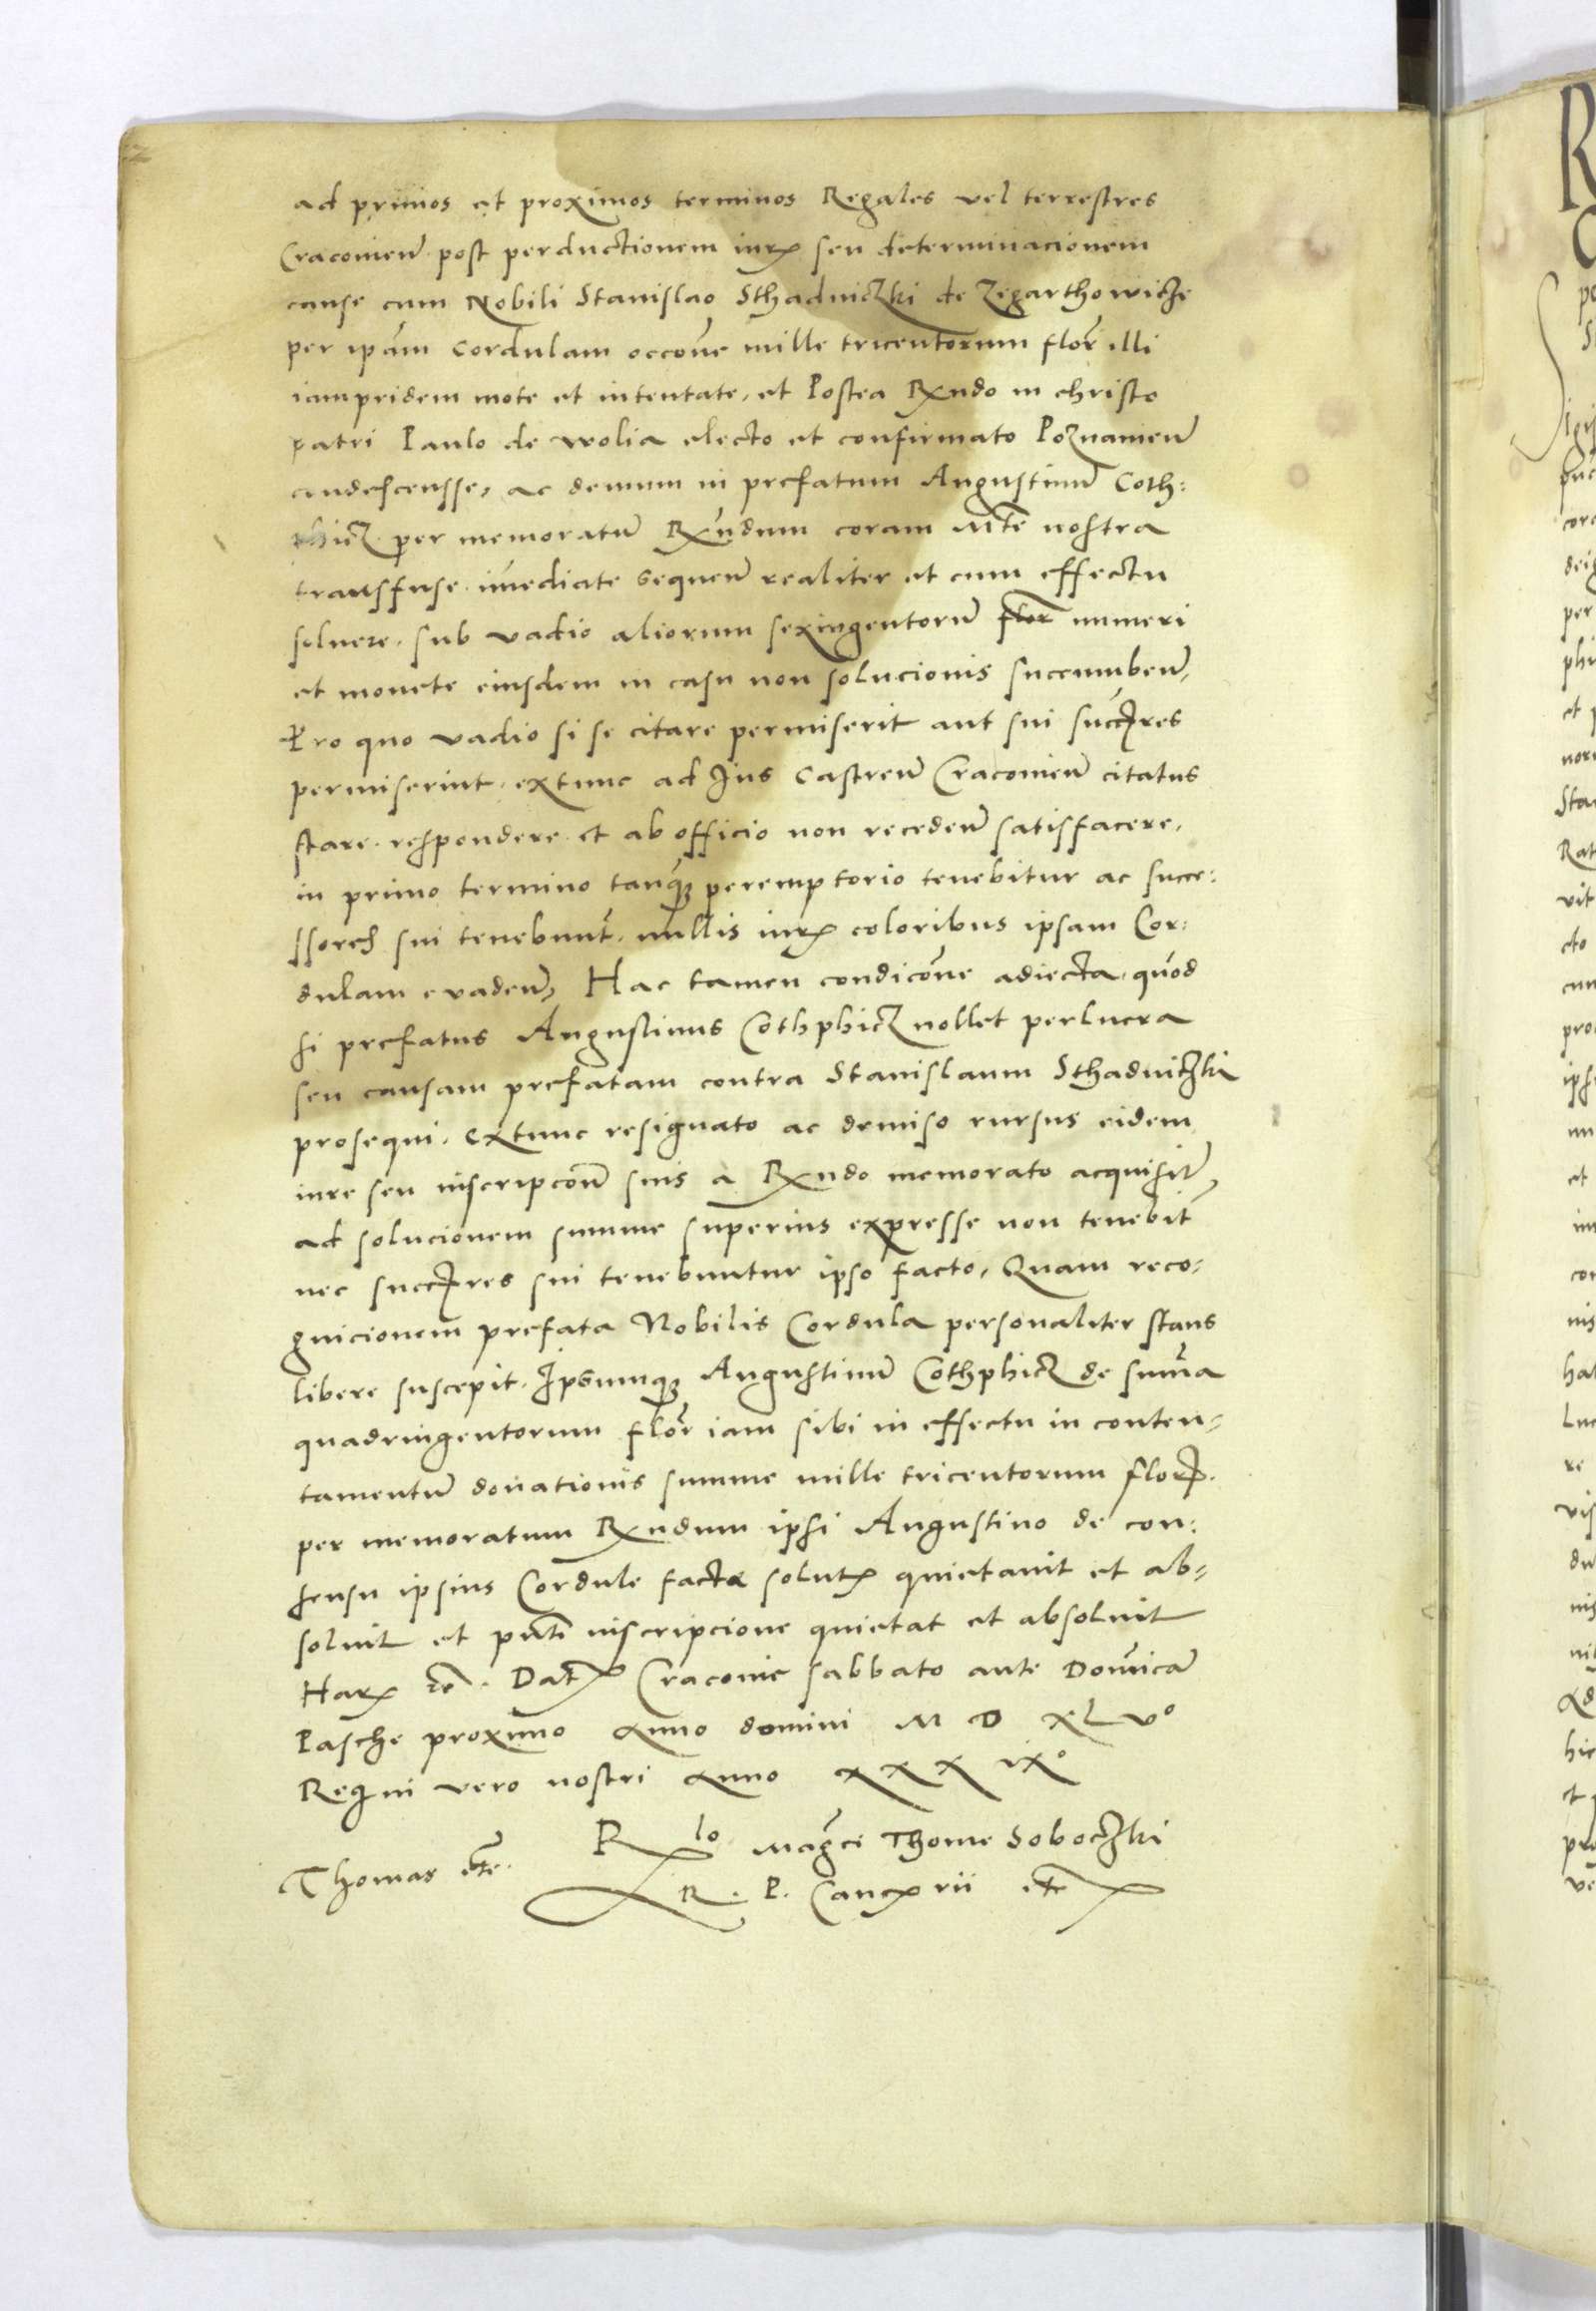 ad primos et proximos terminos Regales vel terrestres
Cracovien̄ post perductionem iurꝭ seu determinacionem
cause cum Nobili Stanislao Sthadniczki de Zegarthowicze
per ip̄am Cordulam occōne mille tricentorum flor̄ illi
iampridem mote et intentate, et Postea Rx̄ndo in christo
patri Paulo de wolia electo et confirmato Poznanien̄
condescensse, ac demum in prefatum Augustinū Coth:
phicz per memoratū Rx̄ndum coram Mte nostra
transfuse imēdiate sequen̄ realiter et cum effectu
soluere. sub vadio aliorum sexingentorū flor̄ numeri
et monete eiusdem in casu non solucionis succumben̄,
Pro quo vadio si se citare permiserit aut sui succꝭres
permiserint. extunc ad Jus Castren̄ Cracovien̄ citatus
stare. respondere et ab officio non receden̄ satisfacere,
in primo termino tanqꝫ peremptorio tenebitur ac succe:
ssores sui tenebunt̄. nullis iurꝭ coloribus ipsam Cor:
dulam evaden̄, Hac tamen condicōne adiecta. quod
si prefatus Augustinus Cothphicz nollet perlucra
seu causam prefatam contra Stanislaum Sthadniczki
prosequi. extunc resignato ac demiso rursus eidem
iure seu inscripcōn̄ suis a Rx̄ndo memorato acquisit̄,
ad solucionem summe superius expresse non tenebit̄
nec succꝭres sui tenebuntur ipso facto, Quam reco:
gnicionem prefata Nobilis Cordula personaliter stans
libere suscepit. Ipsumqꝫ Augustinū Cothphicz de sum̄a
quadringentorum flor̄ iam sibi in effectu in conten:
tamentū donationis summe mille tricentorum florꝭ.
per memoratum Rx̄ndum ipsi Augustino de con:
sensu ipsius Cordule facte solutꝭ quietavit et ab:
solvit et pn̄ti inscripcione quietat et absolvit
Harꝭ rē. Datꝭ Cracovie sabbato ante Domīcā
Pasche proximo Anno domini M D XL Vo
Regni vero nostri Anno XXXIXo
Rlo Maḡci Thome Soboczki
Thomas
R. P. Cancꝭrii etc